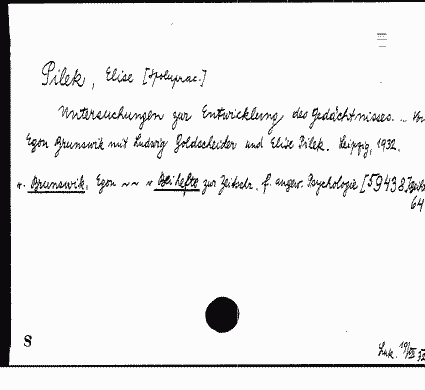 Pilek, Elise [Spoluprac.]
Untersuchungen zur Entwicklung des Gedächtnisses. ... Von
Egon Brunswik mit Ludwig Goldscheider und Elise Pilek. Leipzig, 1932.
v. Brunswik, Egon ~~ v Beihefte zur Zeitschr. f. angew. Psychologie [59438]
64
8